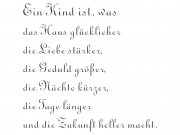 Ein Kind ist, was
das Haus glücklicher
die Liebe stärker,
die Geduld größer,
die Nächte kürzer,
die Tage länger
und die Zukunft heller macht.